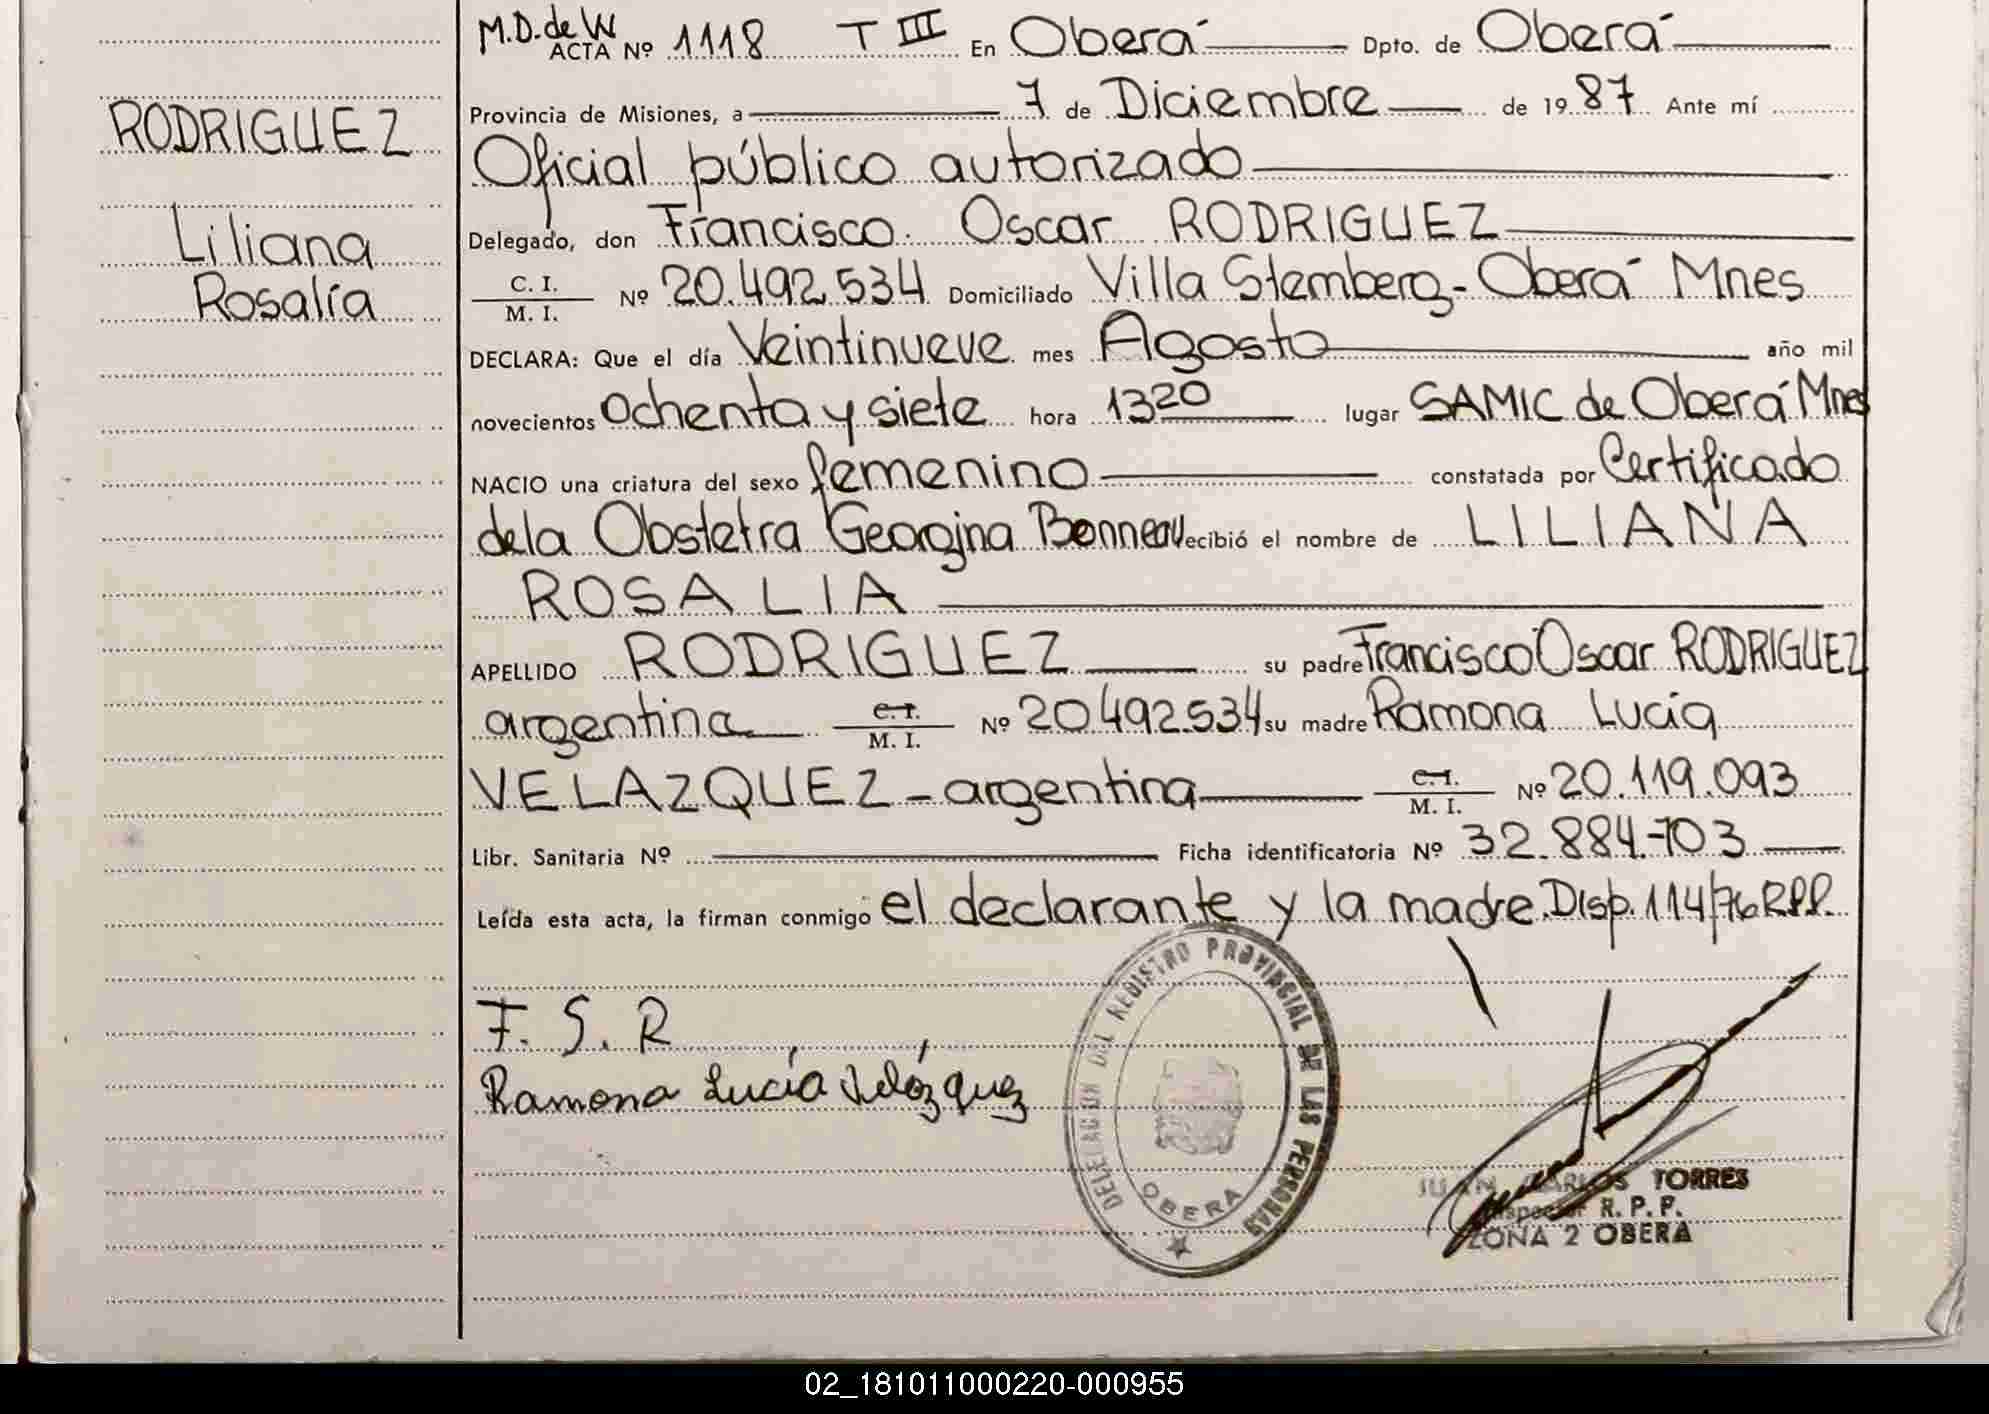 M.D. de W
ACTA Nº 1118 T III En Oberá Dpto. de Oberá
Provincia de Misiones, a 7 de Diciembre de 1987 Ante mí
RODRIGUEZ
Oficial público autorizado
Liliana
Rosalía
Delegado, don Francisco Oscar RODRIGUEZ
C. I.
M. I. Nº 20.492.534 Domiciliado Villa Stemberg - Oberá Mnes
DECLARA: Que el día Veintinueve mes Agosto año mil
novecientos ochenta y siete hora 1320 lugar SAMIC de Oberá Mnes
NACIO una criatura del sexo femenino constatada por Certificado
de la Obstetra Georgina Bonneau recibió el nombre de LILIANA
ROSALIA
APELLIDO RODRIGUEZ su padre Francisco Oscar RODRIGUEZ
argentina C. I. M. I. Nº 20.492.534 su madre Ramona Lucía
VELAZQUEZ - argentina C. I. M. I. Nº 20.119.093
Libr. Sanitaria Nº Ficha identificatoria Nº 32.884.703
Leída esta acta, la firman conmigo el declarante y la madre. Disp. 114/76 R.P.P.
F. S. R
Ramona Lucía Velázquez
DELEGACION DEL REGISTRO PROVINCIAL DE LAS PERSONAS
OBERA
JUAN CARLOS TORRES
Inspector R. P. P.
ZONA 2 OBERA
02_181011000220-000955